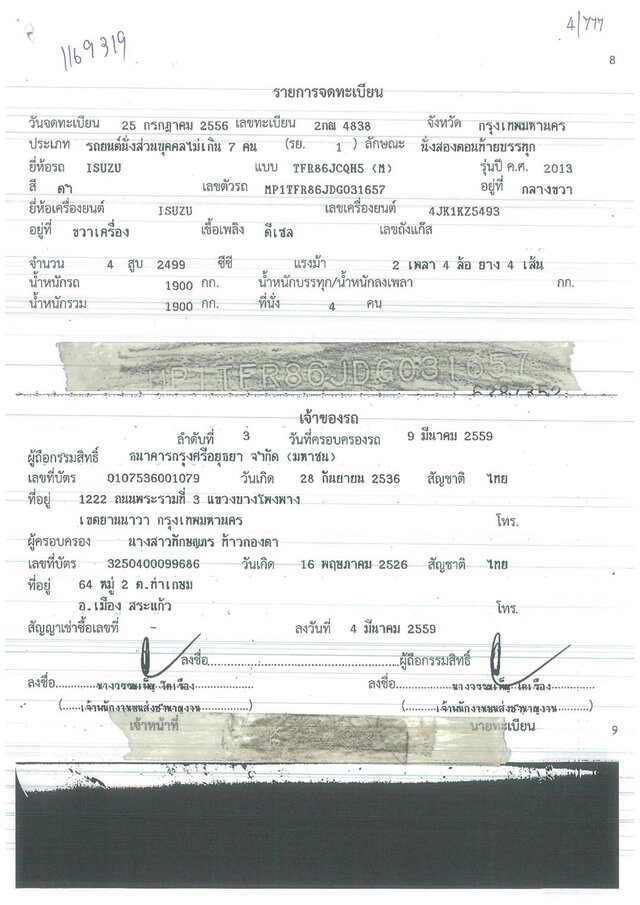 1169319
4/777
8
รายการจดทะเบียน
วันจดทะเบียน 25 กรกฎาคม 2556 เลขทะเบียน 2กณ 4838 จังหวัด กรุงเทพมหานคร
ประเภท รถยนต์นั่งส่วนบุคคลไม่เกิน 7 คน (รย. 1 ) ลักษณะ นั่งสองตอนท้ายบรรทุก
ยี่ห้อรถ ISUZU แบบ TFR86JCQH5 (M) รุ่นปี ค.ศ. 2013
สี ดำ เลขตัวรถ MP1TFR86JDG031657 อยู่ที่ กลางขวา
ยี่ห้อเครื่องยนต์ ISUZU เลขเครื่องยนต์ 4JK1KZ5493
อยู่ที่ ขวาเครื่อง เชื้อเพลิง ดีเซล เลขถังแก๊ส
จำนวน 4 สูบ 2499 ซีซี แรงม้า 2 เพลา 4 ล้อ ยาง 4 เส้น
น้ำหนักรถ 1900 กก. น้ำหนักบรรทุก/น้ำหนักลงเพลา กก.
น้ำหนักรวม 1900 กก. ที่นั่ง 4 คน
MP1TFR86JDG031657
เจ้าของรถ
ลำดับที่ 3 วันที่ครอบครองรถ 9 มีนาคม 2559
ผู้ถือกรรมสิทธิ์ ธนาคารกรุงศรีอยุธยา จำกัด (มหาชน)
เลขที่บัตร 0107536001079 วันเกิด 28 กันยายน 2536 สัญชาติ ไทย
ที่อยู่ 1222 ถนนพระรามที่ 3 แขวงบางโพงพาง
เขตยานนาวา กรุงเทพมหานคร โทร.
ผู้ครอบครอง นางสาวทักษญภร ท้าวกองดา
เลขที่บัตร 3250400099686 วันเกิด 16 พฤษภาคม 2526 สัญชาติ ไทย
ที่อยู่ 64 หมู่ 2 ต.ท่าเกษม
อ.เมือง สระแก้ว โทร.
สัญญาเช่าซื้อเลขที่ - ลงวันที่ 4 มีนาคม 2559
ลงชื่อ ผู้ถือกรรมสิทธิ์
ลงชื่อ ลงชื่อ
(เจ้าพนักงานขนส่งชำนาญงาน) (เจ้าพนักงานขนส่งชำนาญงาน)
เจ้าหน้าที่ นายทะเบียน
9